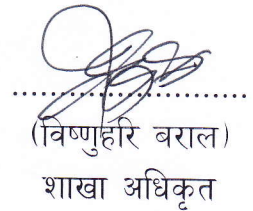 (विष्णुहरि बराल)
शाखा अधिकृत